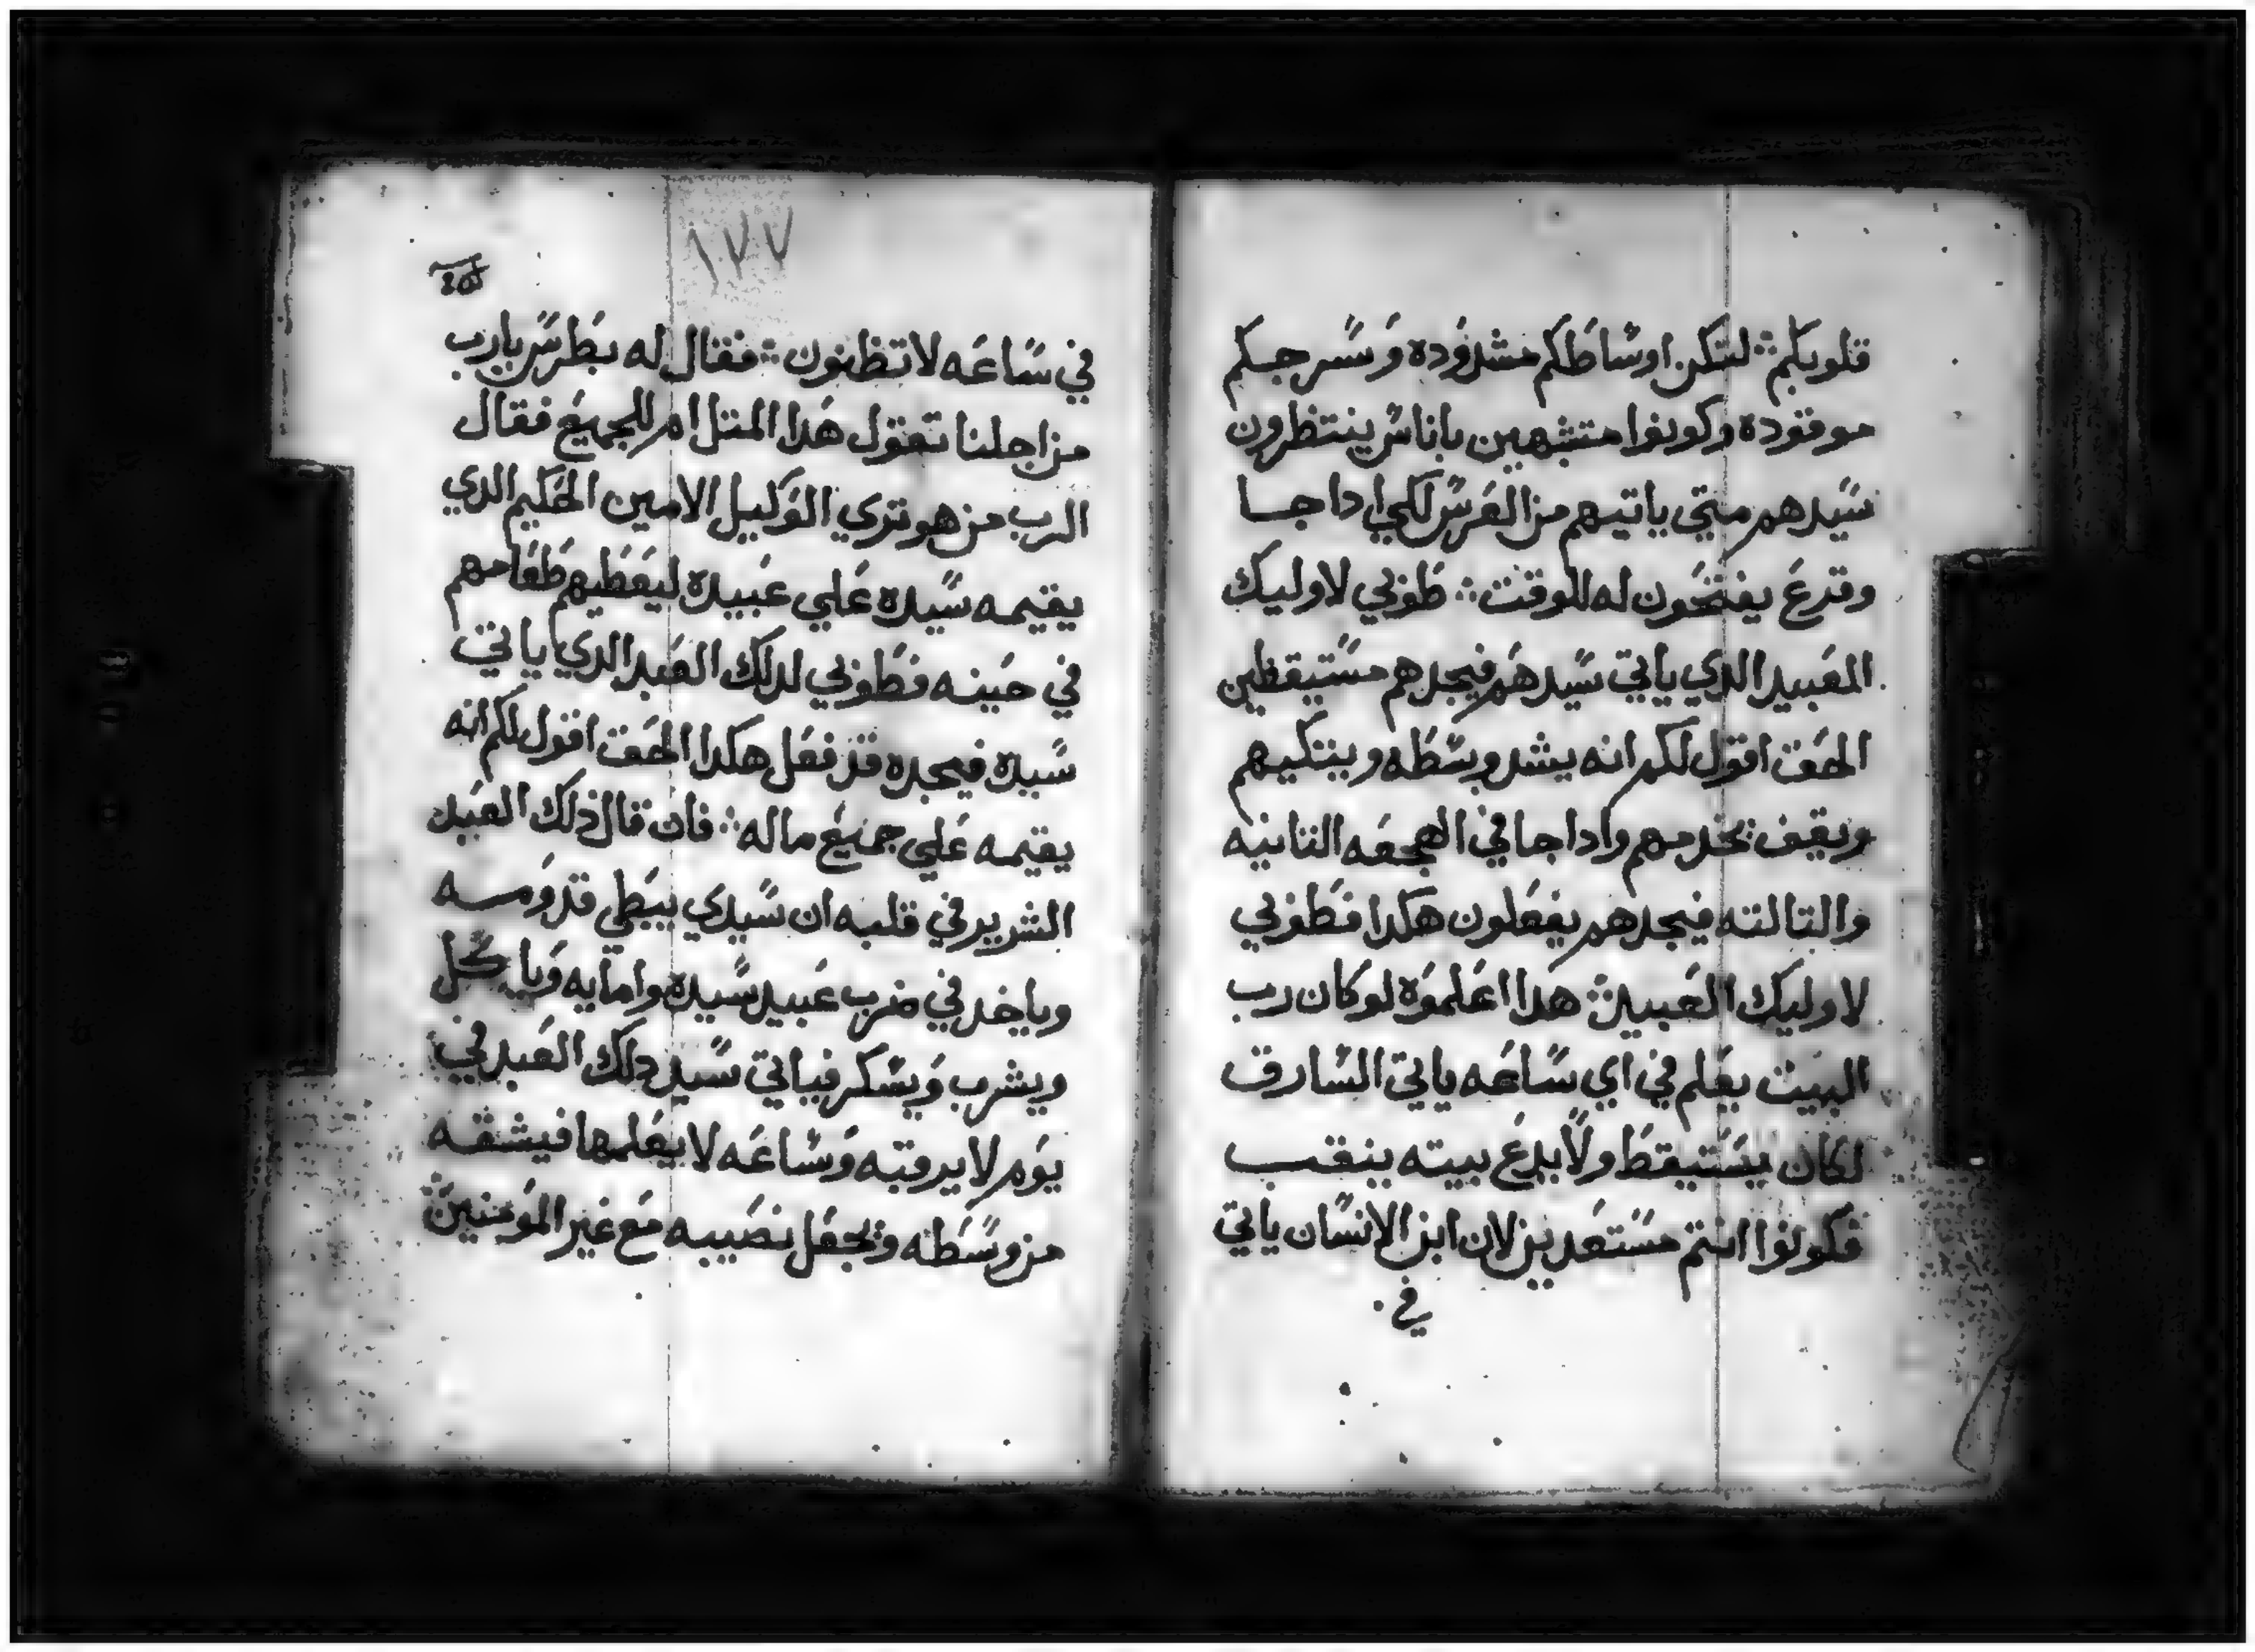 قلوبكم ⁘ لتكن اوساطكم مشدوده وسرجكم
موقوده وكونوا متشبهين باناس ينتظرون
سيدهم متي ياتيهم من العرس لكي ادا جا
وقرع يفتحون له للوقت ⁘ طوبي لاوليك
العبيد الدي ياتي سيدهم فيجدهم مستيقظين
الحق اقول لكم انه يشد وسطه ويتكيهم
ويقف يخدمهم وادا جا في الهجعه التانيه
والتالته فيجدهم يفعلون هكدا فطوبي
لاوليك العبيد ⁘ هدا اعلموه لو كان رب
البيت يعلم في اي ساعه ياتي السارق
لكان يستيقظ ولا يدع بيته ينقب
فكونوا انتم مستعدين لان ابن الانسان ياتي
في
١٧٧
في ساعه لا تظنون ⁘ فقال له بطرس يارب
من اجلنا تقول هدا المتل ام للجميع فقال
الرب من هو تري الوكيل الامين الحكيم الدي
يقيمه سيده علي عبيده ليعطيهم طعامهم
في حينه فطوبي لدلك العبد الدي ياتي
سيده فيجده قد فعل هكدا الحق اقول لكم انه
يقيمه علي جميع ماله ⁘ فان قال ذلك العبد
الشرير في قلبه ان سيدي يبطي قدومه
وياخد في ضرب عبيد سيده وامايه وياكل
ويشرب ويسكر فياتي سيد دلك العبد في
يوم لا يرقبه وساعه لا يعلمها فيشقه
من وسطه ويجعل نصيبه مع غير المومنين